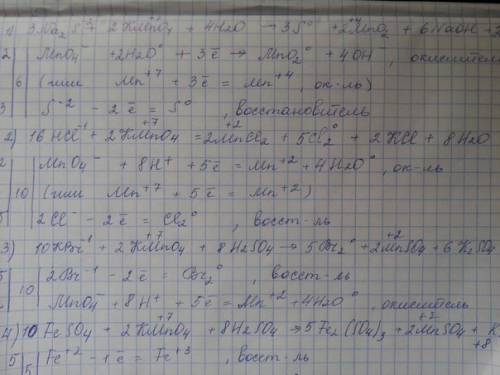 3Na₂S⁻² + 2KMnO₄⁺⁷ + 4H₂O → 3S⁰ + 2MnO₂⁺⁴ + 6NaOH +
2 | MnO₄⁻ + 2H₂O⁰ + 3ē → MnO₂⁰ + 4OH , окислитель
6 | (или Mn⁺⁷ + 3ē = Mn⁺⁴, ок-ль)
3 | S⁻² - 2ē = S⁰ , восстановитель
2) 16HCl⁻¹ + 2KMnO₄⁺⁷ = 2MnCl₂⁺² + 5Cl₂⁰ + 2KCl + 8H₂O
2 | MnO₄⁻ + 8H⁺ + 5ē = Mn⁺² + 4H₂O⁰, ок-ль
10 | (или Mn⁺⁷ + 5ē = Mn⁺²)
5 | 2Cl⁻ - 2ē = Cl₂⁰ , восст-ль
3) 10KBr⁻¹ + 2KMnO₄⁺⁷ + 8H₂SO₄ → 5Br₂⁰ + 2MnSO₄⁺² + 6K₂SO₄
5 | 10 | 2Br⁻¹ - 2ē = Br₂⁰ , восст-ль
MnO₄⁻ + 8H⁺ + 5ē = Mn⁺² + 4H₂O⁰ , окислитель
4) 10FeSO₄ + 2KMnO₄⁺⁷ + 8H₂SO₄ → 5Fe₂(SO₄)₃ + 2MnSO₄⁺² + K
+8
5 | 5 | Fe⁺² - 1ē = Fe⁺³ , восст-ль